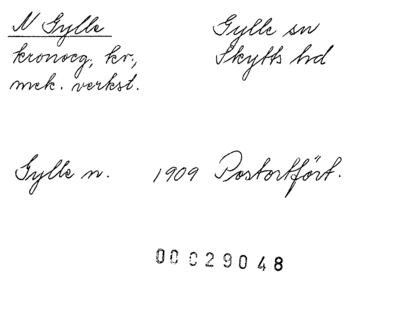 N Gylle
Gylle sn
kronoeg, kr.,
Skytts hd
mek. verkst.
Gylle n. 1909 Postortfört.
00029048